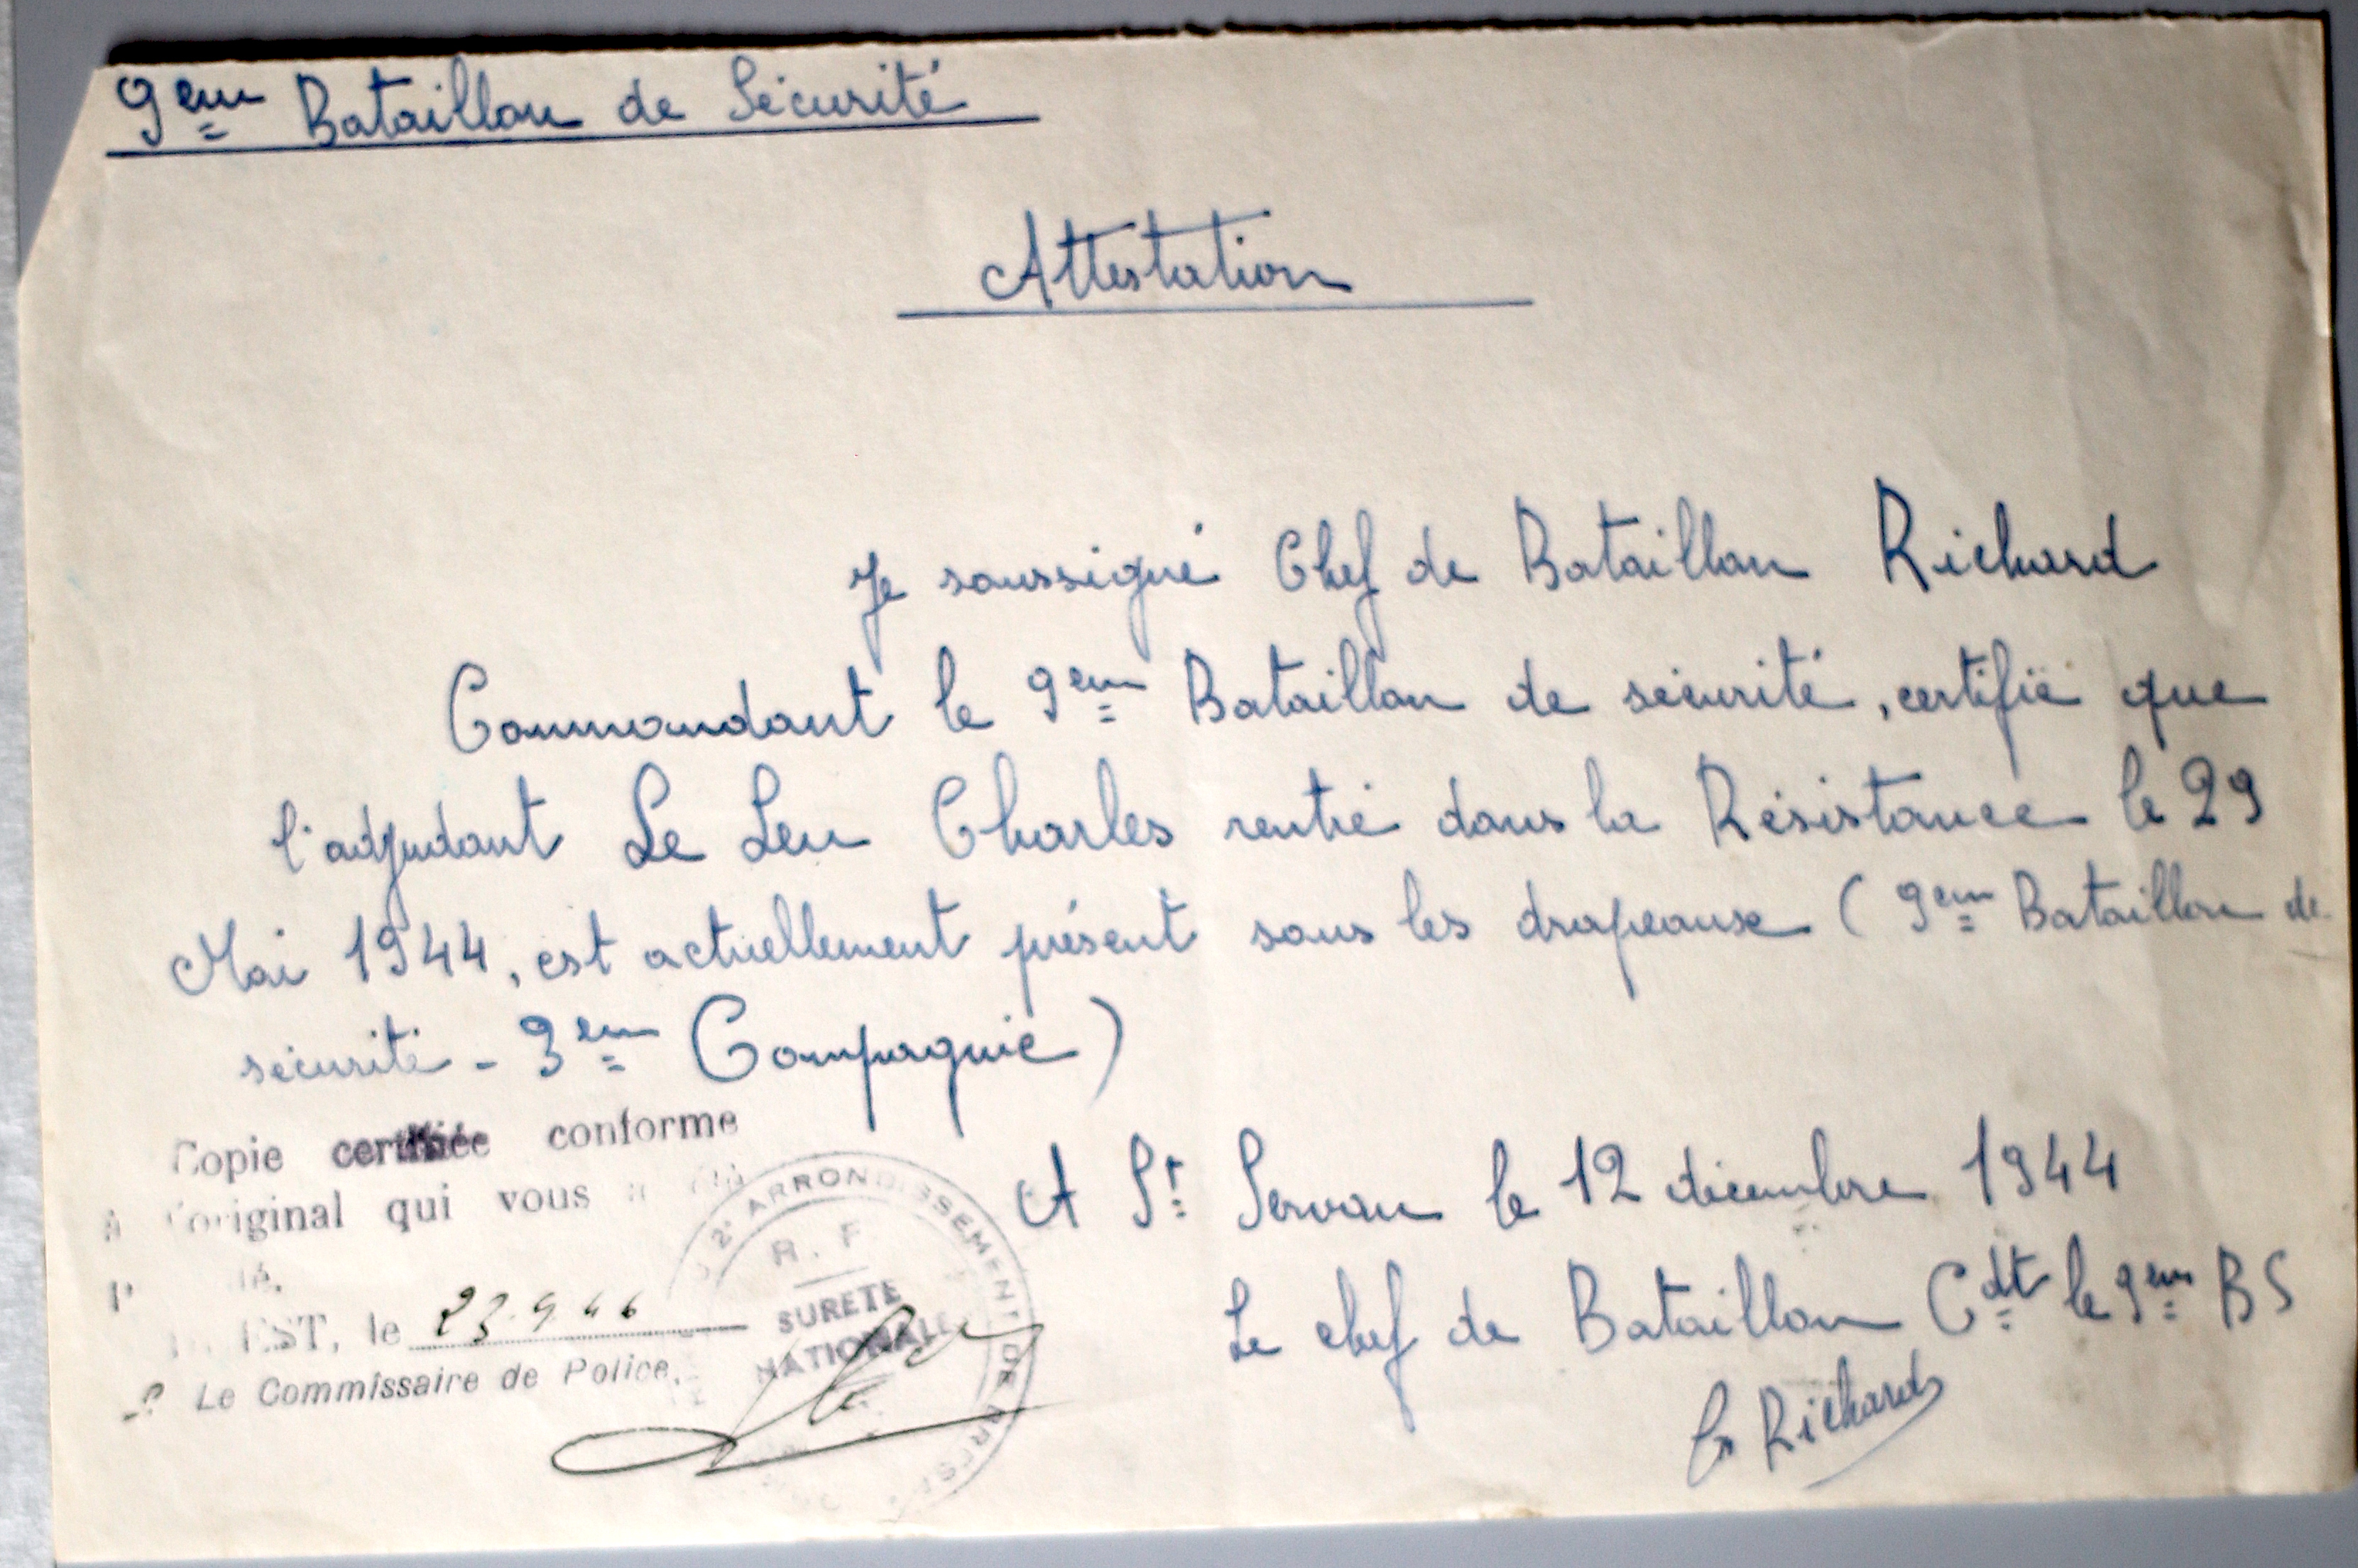 9em Bataillon de Sécurité
Attestation
Je soussigné Chef de Bataillon Richard
Commandant le 9em Bataillon de sécurité, certifie que
l'adjudant Le Leu Charles rentré dans la Résistance le 29
Mai 1944, est actuellement présent sous les drapeaux (9em Bataillon de
sécurité - 3em Compagnie)
Copie certifiée conforme
à l'original qui vous a été
A St Servan le 12 décembre 1944
EST, le 23.9.46
Le Commissaire de Police,
2e ARRONDISSEMENT DE BREST
R.F
SURETE
NATIONALE
Le chef de Bataillon Cdt le 9em BS
Richard